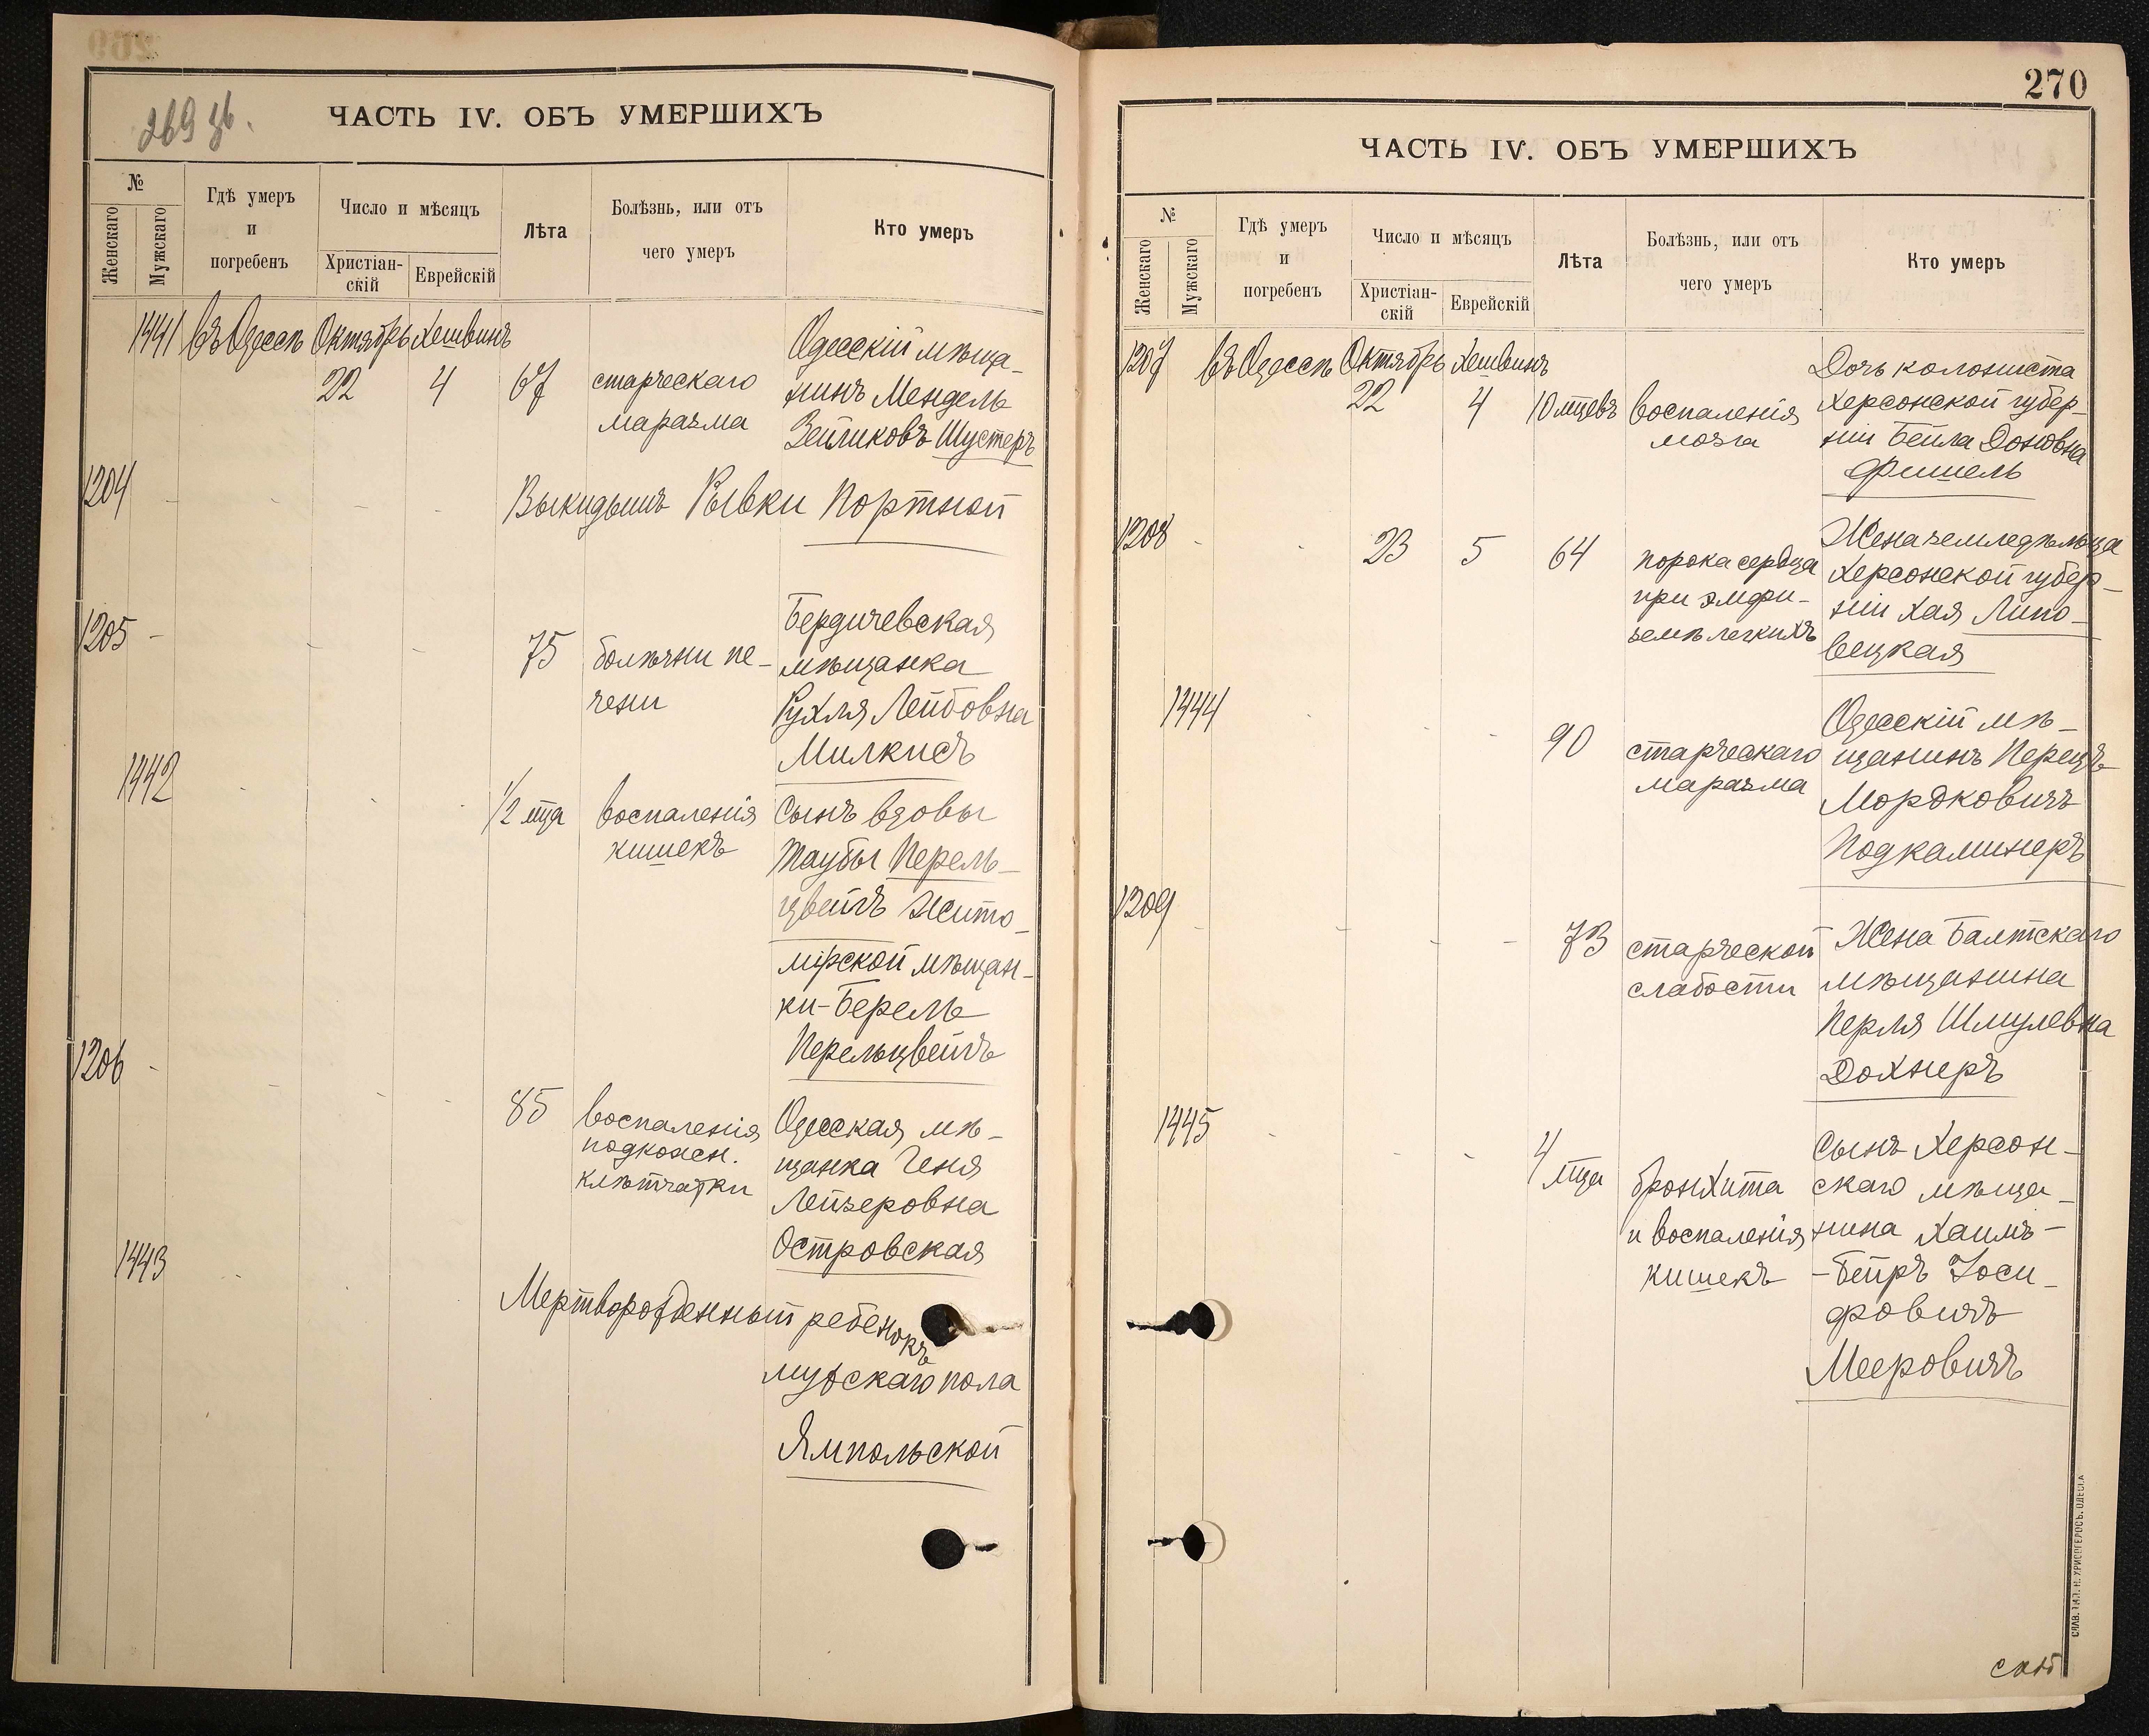 269 зв.
ЧАСТЬ IV. ОБЪ УМЕРШИХЪ
№
Женскаго
Мужскаго
Гдѣ умеръ
и
погребенъ
Число и мѣсяцъ
Христіан-
скій
Еврейскій
Лѣта
Болѣзнь, или отъ
чего умеръ
Кто умеръ
1441 въ Одессѣ Октябрь Хешвинъ
22 4 67 старческаго
маразма
Одесскій мѣща-
нинъ Мендель
Зейликовъ Шустеръ
1204
Выкидышъ Рывки Портной
1205
75 болѣзни пе-
чени
Бердичевская
мѣщанка
Рухля Лейбовна
Милкисъ
1442
1/2 мца воспаленія
кишекъ
Сынъ вдовы
Таубы Перель-
цвейгъ Жито-
мірской мѣщан-
ки-Берель
Перельцвейгъ
1206
85 воспаленія
подкожн.
клѣтчатки
Одесская мѣ-
щанка Геня
Лейзеровна
Островская
1443
Мертворожденный ребенокъ
мужскаго пола
Ямпольской
270
ЧАСТЬ IV. ОБЪ УМЕРШИХЪ
№
Женскаго
Мужскаго
Гдѣ умеръ
и
погребенъ
Число и мѣсяцъ
Христіан-
скій
Еврейскій
Лѣта
Болѣзнь, или отъ
чего умеръ
Кто умеръ
1207 въ Одессѣ Октябрь Хешвинъ
22 4 10 мцевъ воспаленія
мозга
Дочь колониста
Херсонской губер-
ніи Бейла Доновна
Фишель
1208
23 5 64 порока сердца
при эмфи-
земѣ легкихъ
Жена земледѣльца
Херсонской губер-
ніи Хая Липо-
вецкая
1444
90 старческаго
маразма
Одесскій мѣ-
щанинъ Перецъ
Мордковичъ
Подкаминеръ
1209
73 старческой
слабости
Жена Балтскаго
мѣщанина
Перля Шмулевна
Дохнеръ
1445
4 мца бронхита
и воспаленія
кишекъ
Сынъ Херсон-
скаго мѣща-
нина Хаимъ-
-Бейръ Іоси-
фовичъ
Мееровичъ
СЛАВ. ТИП. Н. ХРИСОГЕЛОСЪ. ОДЕССА